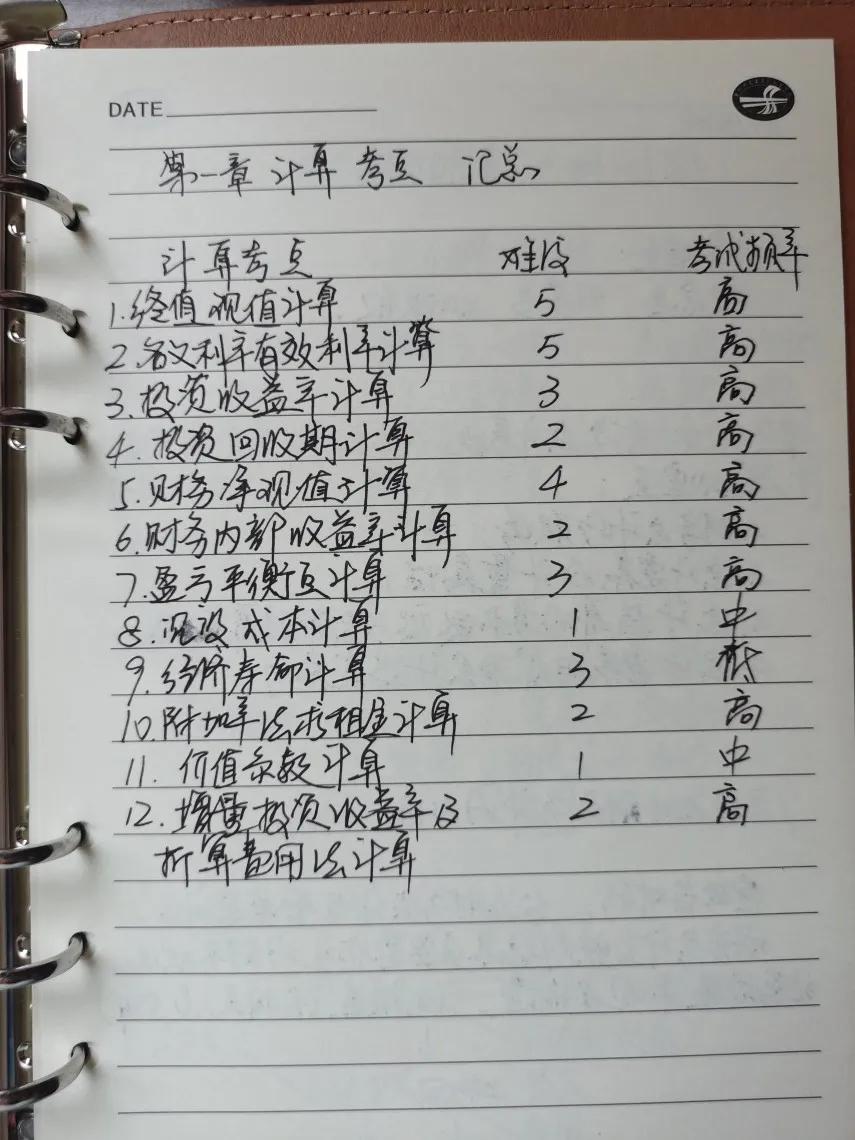 DATE
第一章 计算 考点 汇总
计算考点 难度 考试频率
1.终值现值计算 5 高
2.名义利率有效利率计算 5 高
3.投资收益率计算 3 高
4.投资回收期计算 2 高
5.财务净现值计算 4 高
6.财务内部收益率计算 2 高
7.盈亏平衡点计算 3 高
8.沉没成本计算 1 中
9.经济寿命计算 3 低
10.附加率法求租金计算 2 高
11.价值系数计算 1 中
12.增量投资收益率及 2 高
折算费用法计算